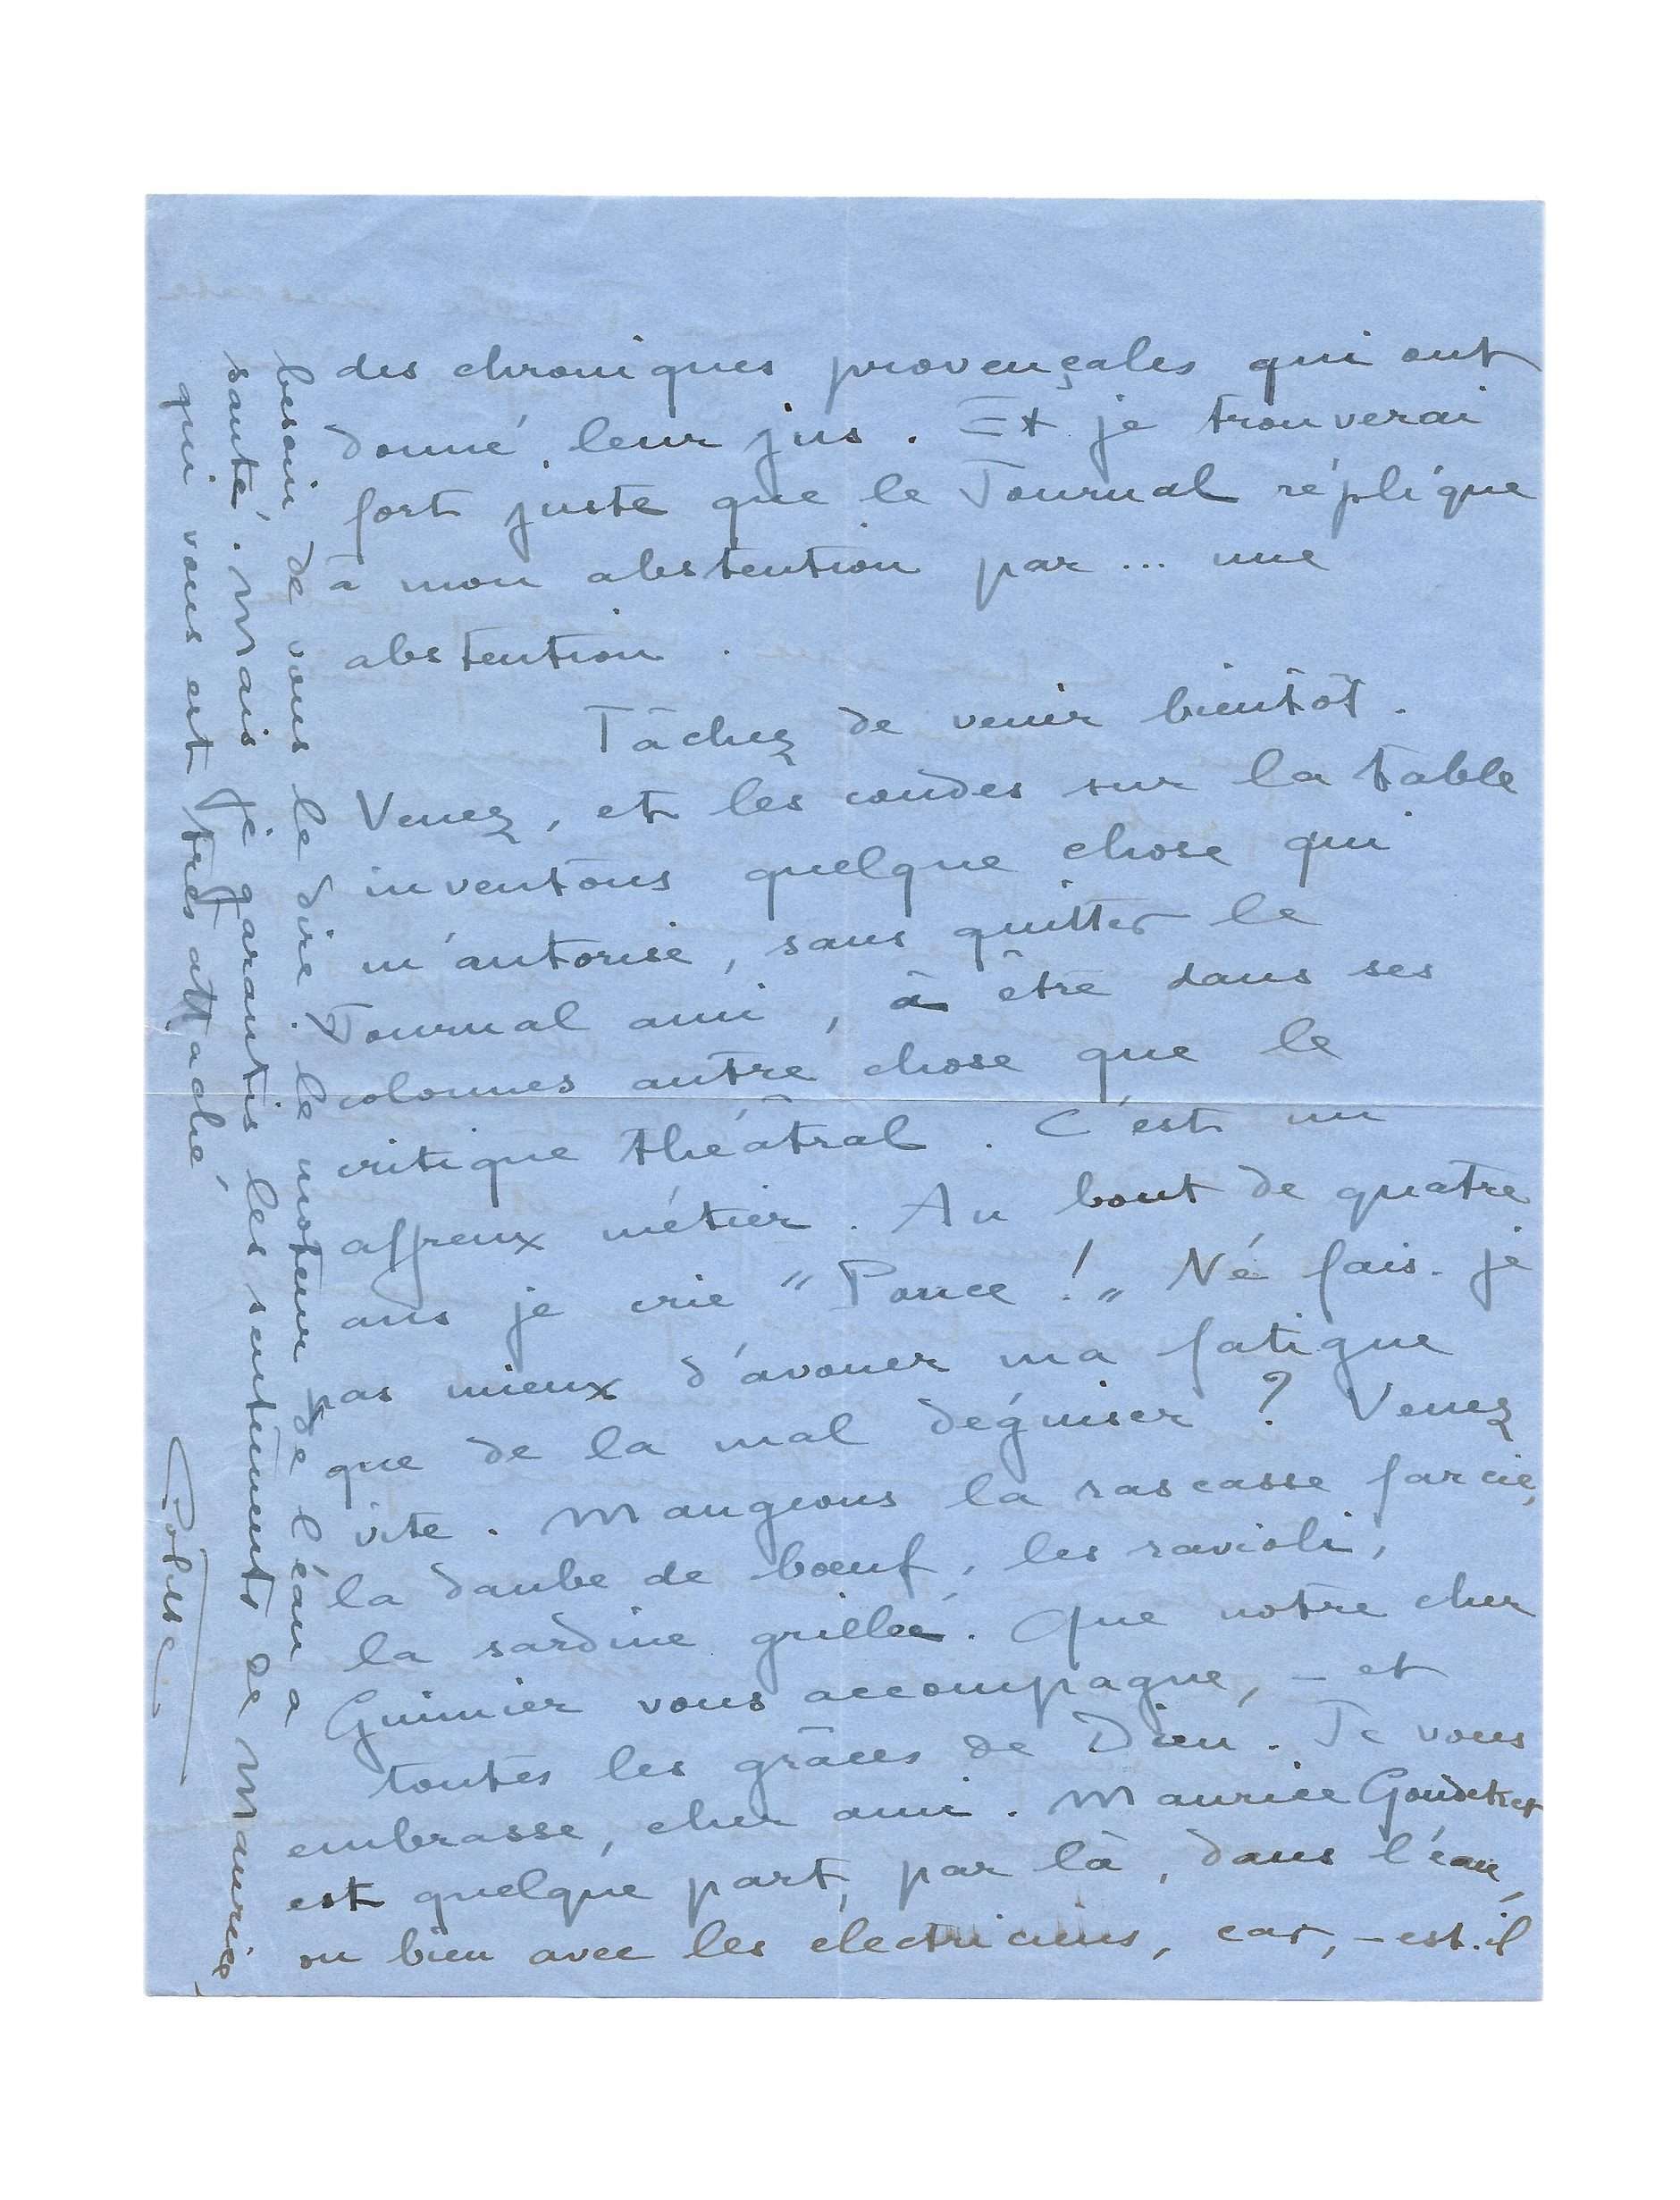 des chroniques provençales qui ont
donné leur jus. Et je trouverai
fort juste que le Journal réplique
à mon abstention par... une
abstention.
Tâchez de venir bientôt.
Venez, et les coudes sur la table
inventons quelque chose qui
m'autorise, sans quitter le
Journal ami, à être dans ses
colonnes autre chose que le
critique théâtral. C'est un
affreux métier. Au bout de quatre
ans je crie "Pouce!" Ne fais-je
pas mieux d'avouer ma fatigue
que de la mal déguiser? Venez
vite. Mangeons la rascasse farcie,
la daube de bœuf, les ravioli,
la sardine grillée. Que notre cher
Guimier vous accompagne, - et
toutes les grâces de Dieu. Je vous
embrasse, cher ami. Maurice Goudeket
est quelque part, par là, dans l'eau,
ou bien avec les électriciens, car, - est-il
besoin de vous le dire. le moteur de l'eau a
sauté. Mais je garantis les sentiments de Maurice,
qui vous est très attaché
Colette